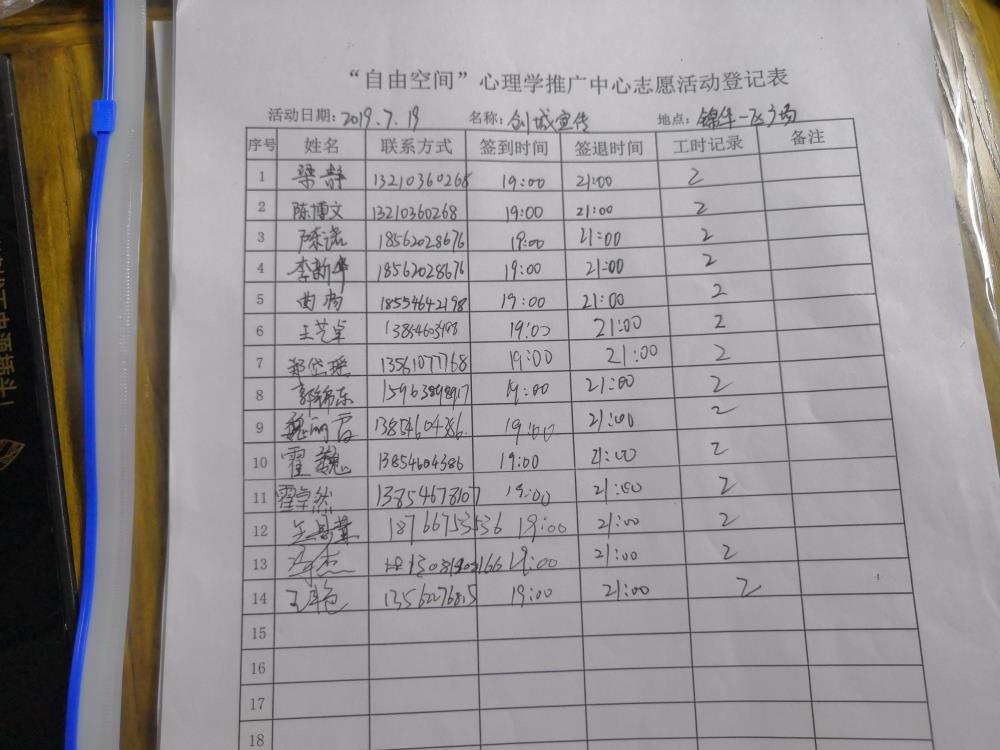 “自由空间”心理学推广中心志愿活动登记表
活动日期: 2019.7.19 名称: 创城宣传 地点: 锦华一区广场
序号 姓名 联系方式 签到时间 签退时间 工时记录 备注
1 梁静 13210360268 19:00 21:00 2
2 陈博文 13210360268 19:00 21:00 2
3 陈诺 18562028676 19:00 21:00 2
4 李新华 18562028676 19:00 21:00 2
5 曲 18554642198 19:00 21:00 2
6 王艺卓 19:00 21:00 2
7 郭岱瑶 13561077768 19:00 21:00 2
8 郭锦东 19:00 21:00 2
9 魏丽君 13854604386. 19:00 21:00 2
10 霍巍 13854604386 19:00 21:00 2
11 霍卓然 13854678107 19:00 21:00 2
12 18766753536 19:00 21:00 2
13 19:00 21:00 2
14 王艳 13562276815 19:00 21:00 2
15
16
17
18